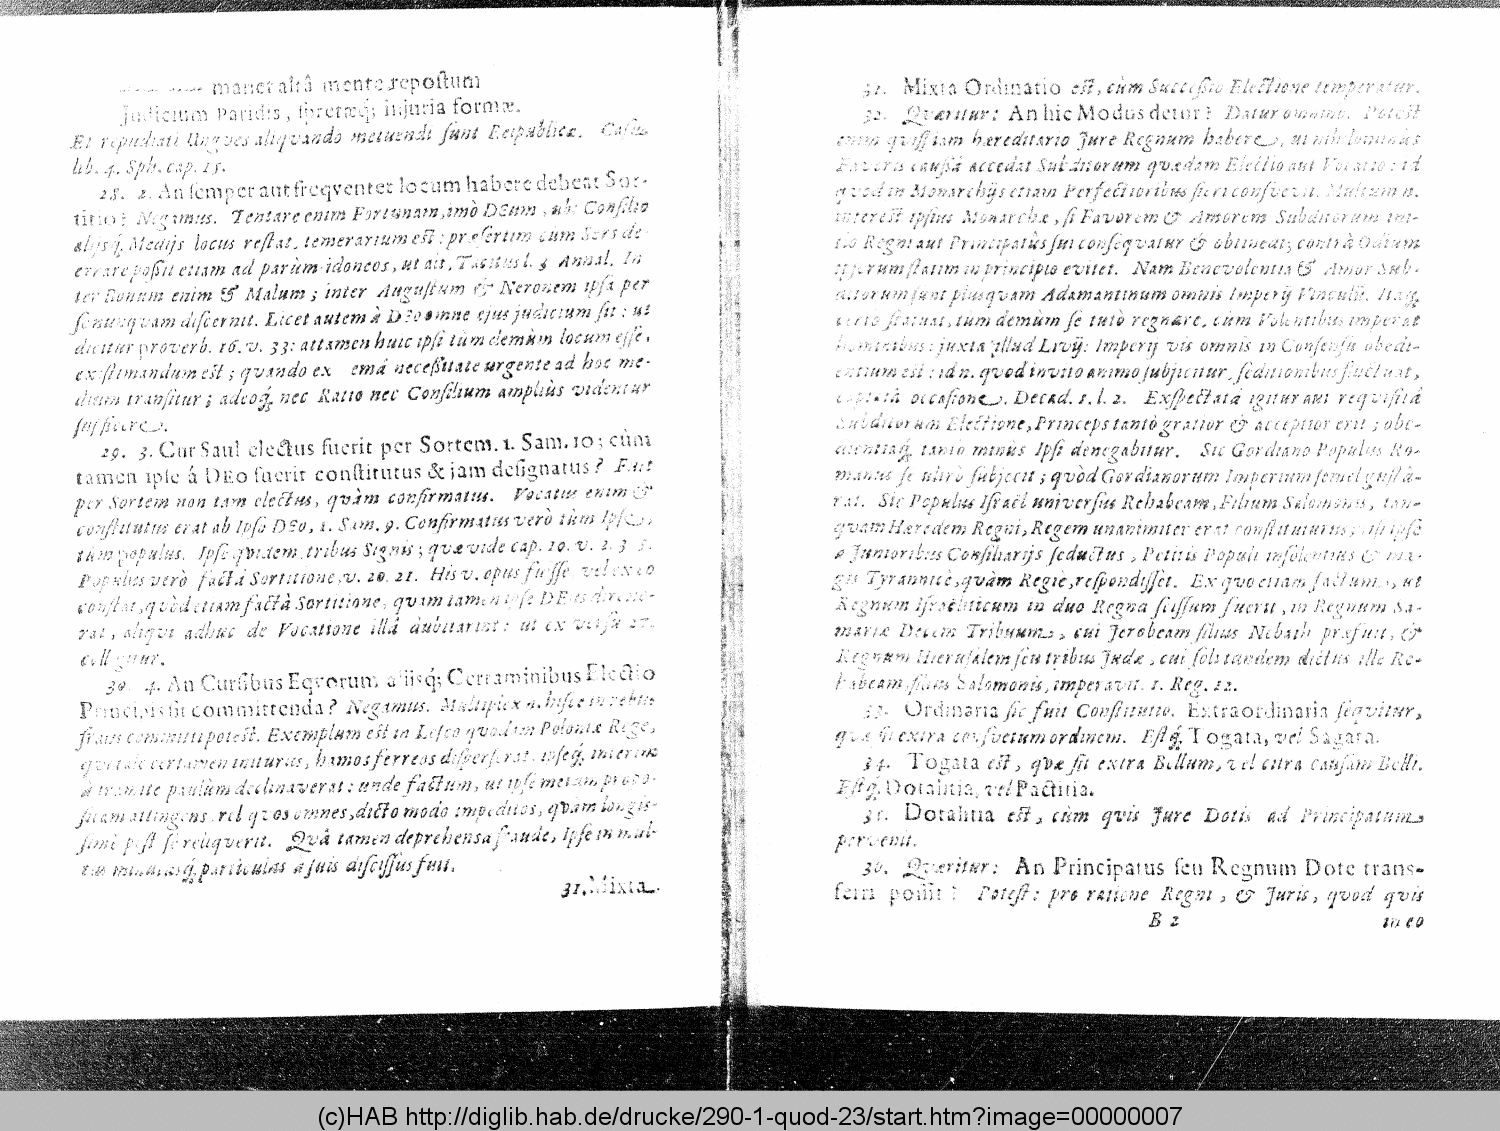 manet altâ mente repostum
Judicium Paridis, spretæq́; injuria formæ.
Et repudiati Unqves aliqvando metuendi sunt Reipublicæ.
lib. 4. Sph. cap. 15.
28. 2. An semper aut freqventer locum habere debeat Sor-
titio? Negamus. Tentare enim Fortunam, imò DEum, ubi Consilio
alijsq́, Medijs locus restat, temerarium est: præsertim cum Sors de-
errare possit etiam ad parùm idoneos, ut ait, Tacitus l. 3 Annal. In
ter Bonum enim & Malum; inter Augustum & Neronem ipsa per
se nunqvam discernit. Licet autem â DEo omne ejus judicium sit: ut
dicitur proverb. 16. v. 33: attamen huic ipsi tùm demùm locum esse,
existimandum est; qvando ex emá necessitate urgente ad hoc me-
dium transitur; adeoq́, nec Ratio nec Consilium ampliùs videntur
sufficere.
29. 3. Cur Saul electus fuerit per Sortem. 1. Sam. 10; cùm
tamen ipse á DEo fuerit constitutus & jam designatus? Fuit
per Sortem non tam electus, qvàm confirmatus. Vocatus enim &
constitutus erat ab Ipso DEo, 1. Sam. 9. Confirmatus verò tùm Ipse,
tùm populus. Ipse qvidem tribus Signis; qvæ vide cap. 10. v. 2. 3 5.
Populus verò factâ Sortitione, v. 20. 21. His v. opus fuisse vel ex eo
constat, qvòd etiam factâ Sortitione, qvam tamen ipse DEus direxe-
rat, aliqvi adhuc de Vocatione illâ dubitarint: ut ex versu 27.
colligitur.
30. 4. An Cursibus Eqvorum aliisq́; Certaminibus Electio
Principis sit committenda? Negamus. Multiplex n. hisce in rebus
fraus committi potest. Exemplum est in Lesco qvodam Poloniæ Rege,
qvi tale certamen initurus, hamos ferreos disperserat, ipseq́, interim
à tramite paulùm declinaverat: unde factum, ut ipse metam propo-
sitam attingens, reliqvos omnes, dicto modo impeditos, qvam longis-
simè post se reliqverit. Qvâ tamen deprehensa fraude, Ipse in mul-
tas minutasq́, particulas à suis discissus fuit.
31. Mixta
31. Mixta Ordinatio est, cùm Successio Electione temperatur.
32. Qværitur: An hic Modus detur? Datur omnino. Potest
enim qvispiam hæreditario Jure Regnum habere, ut nihilominus
Favoris caussâ accedat Subditorum qvædam Electio aut Vocatio: id
qvod in Monarchijs etiam Perfectioribus fieri consvevit. Multum n.
interest ipsius Monarchæ, si Favorem & Amorem Subditorum ini-
tio Regni aut Principatûs sui conseqvatur & obtineat; contrà Odium
ipsorum statim in principio evitet. Nam Benevolentia & Amor Sub-
ditorum sunt plusqvam Adamantinum omnis Imperij Vinculū. Itaq́,
certo statuat, tùm demùm se tutò regnare, cùm Volentibus imperat
hominibus: juxta illud Livij: Imperij vis omnis in Consensu obedi-
entium est: id n. qvod invito animo subjicitur, seditionibus fluctuat,
captatâ occasione. Decad. 1. l. 2. Exspectatâ igitur aut reqvisitâ
Subditorum Electione, Princeps tantò gratior & acceptior erit; obe-
dientiaq́, tanto minùs Ipsi denegabitur. Sic Gordiano Populus Ro-
manus se ultrò subjecit; qvòd Gordianorum Imperium semel gustâ-
rat. Sic Populus Israël universus Rehabeam, Filium Salomonis, tan-
qvam Hæredem Regni, Regem unanimiter erat constituturus, nisi ipse
à Junioribus Consiliarijs seductus, Petitis Populi insolentius & ma-
gis Tyrannicè, qvàm Regiè, respondisset. Ex qvo etiam factum, ut
Regnum Israëliticum in duo Regna scissum fuerit, in Regnum Sa-
mariæ Decem Tribuum, cui Jerobeam filius Nebath præfuit, &
Regnum Hierusalem seu tribus Judæ, cui soli tandem dictus ille Re-
habeam, filius Salomonis, imperavit. 1. Reg. 12.
33. Ordinaria sic fuit Constitutio. Extraordinaria seqvitur,
qvæ fit extra consvetum ordinem. Estq́, Togata, vel Sagata.
34. Togata est, qvæ fit extra Bellum, vel citra causam Belli.
Estq́, Dotalitia, vel Pactitia.
35. Dotalitia est, cùm qvis Jure Dotis ad Principatum
pervenit.
36. Qværitur: An Principatus seu Regnum Dote trans-
ferri possit? Potest: pro ratione Regni, & Juris, qvod qvis
B 2
in eo
(c)HAB http://diglib.hab.de/drucke/290-1-quod-23/start.htm?image=00000007